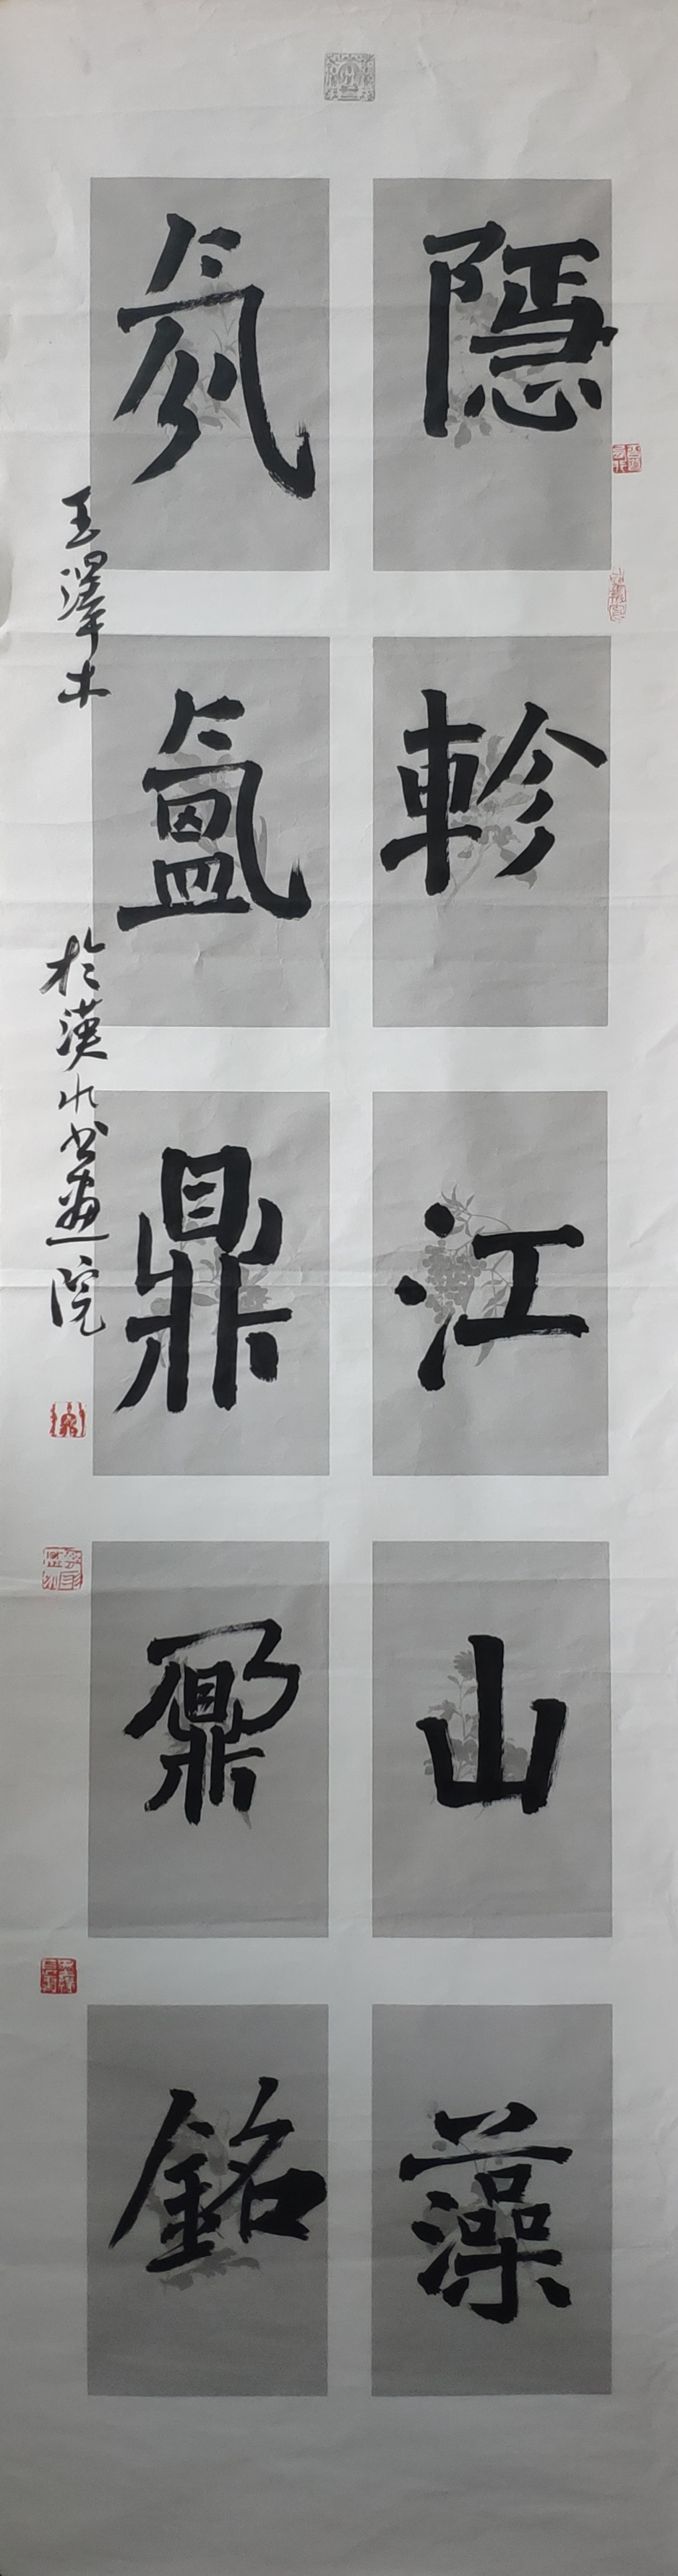 隱軫江山藻
氛氳鼎鼐銘
王澤木 於漢水書畫院